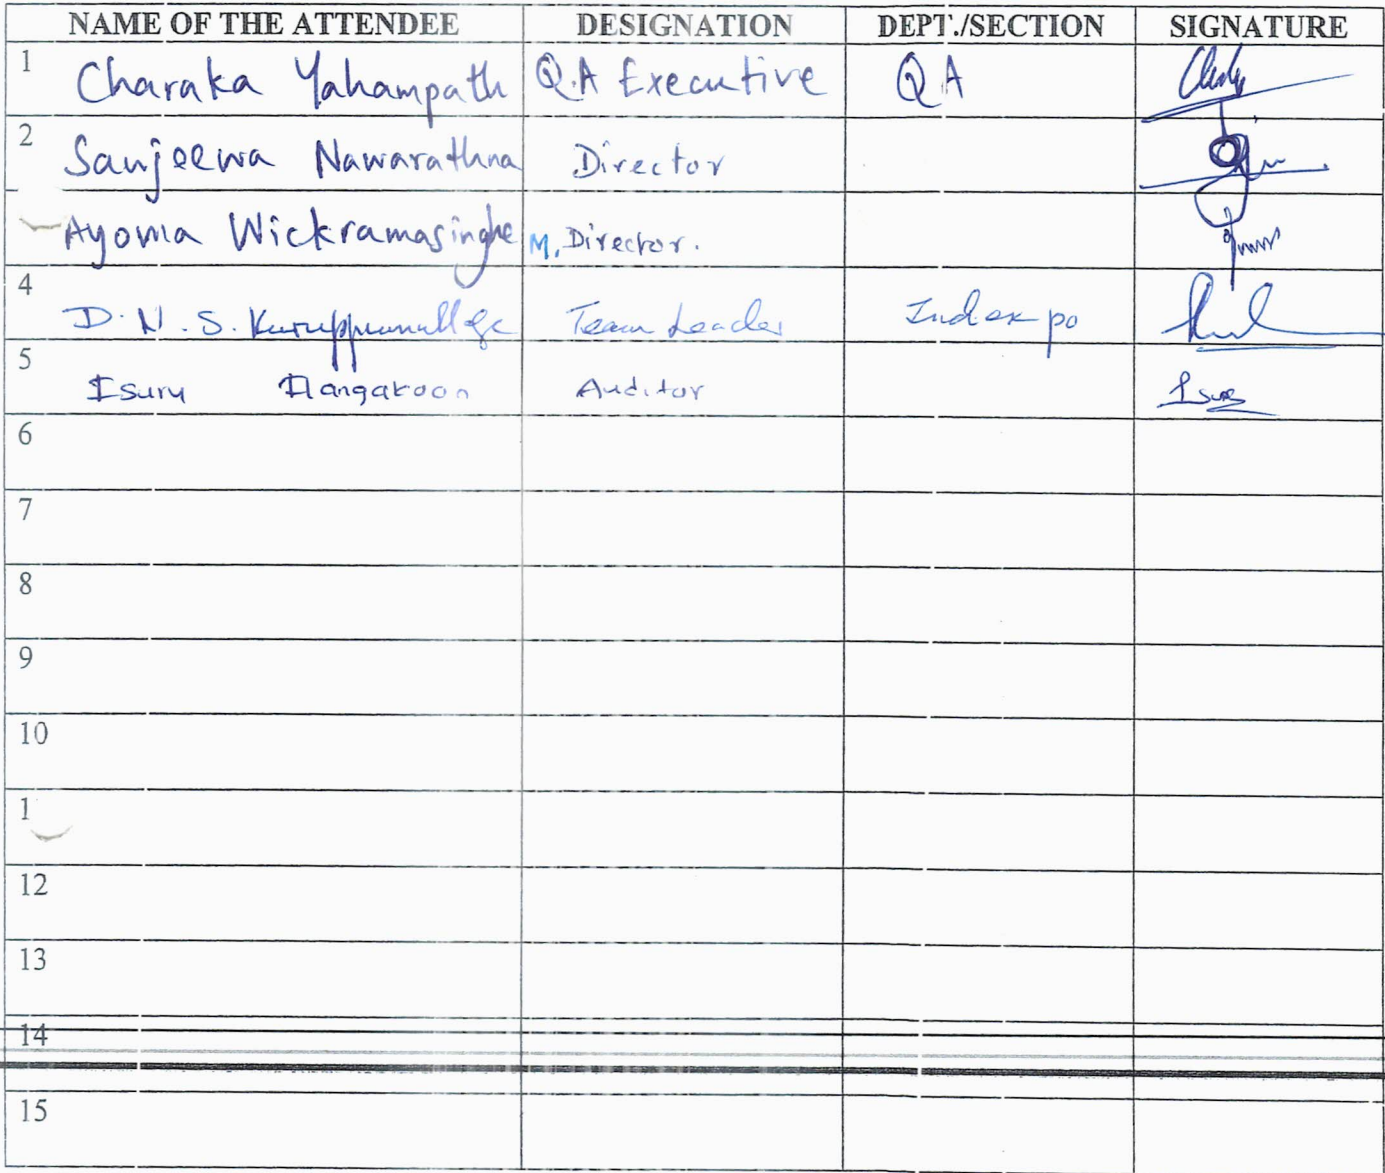 NAME OF THE ATTENDEE DESIGNATION DEPT./SECTION SIGNATURE
1 Charaka Yahampath Q.A Executive QA
2 Sanjeewa Nawarathna Director
Ayoma Wickramasinghe M. Director.
4 D. N. S. Team Leader Indexpo
5 Isuru Ilangakoon Auditor Isuru
6
7
8
9
10
1
12
13
14
15